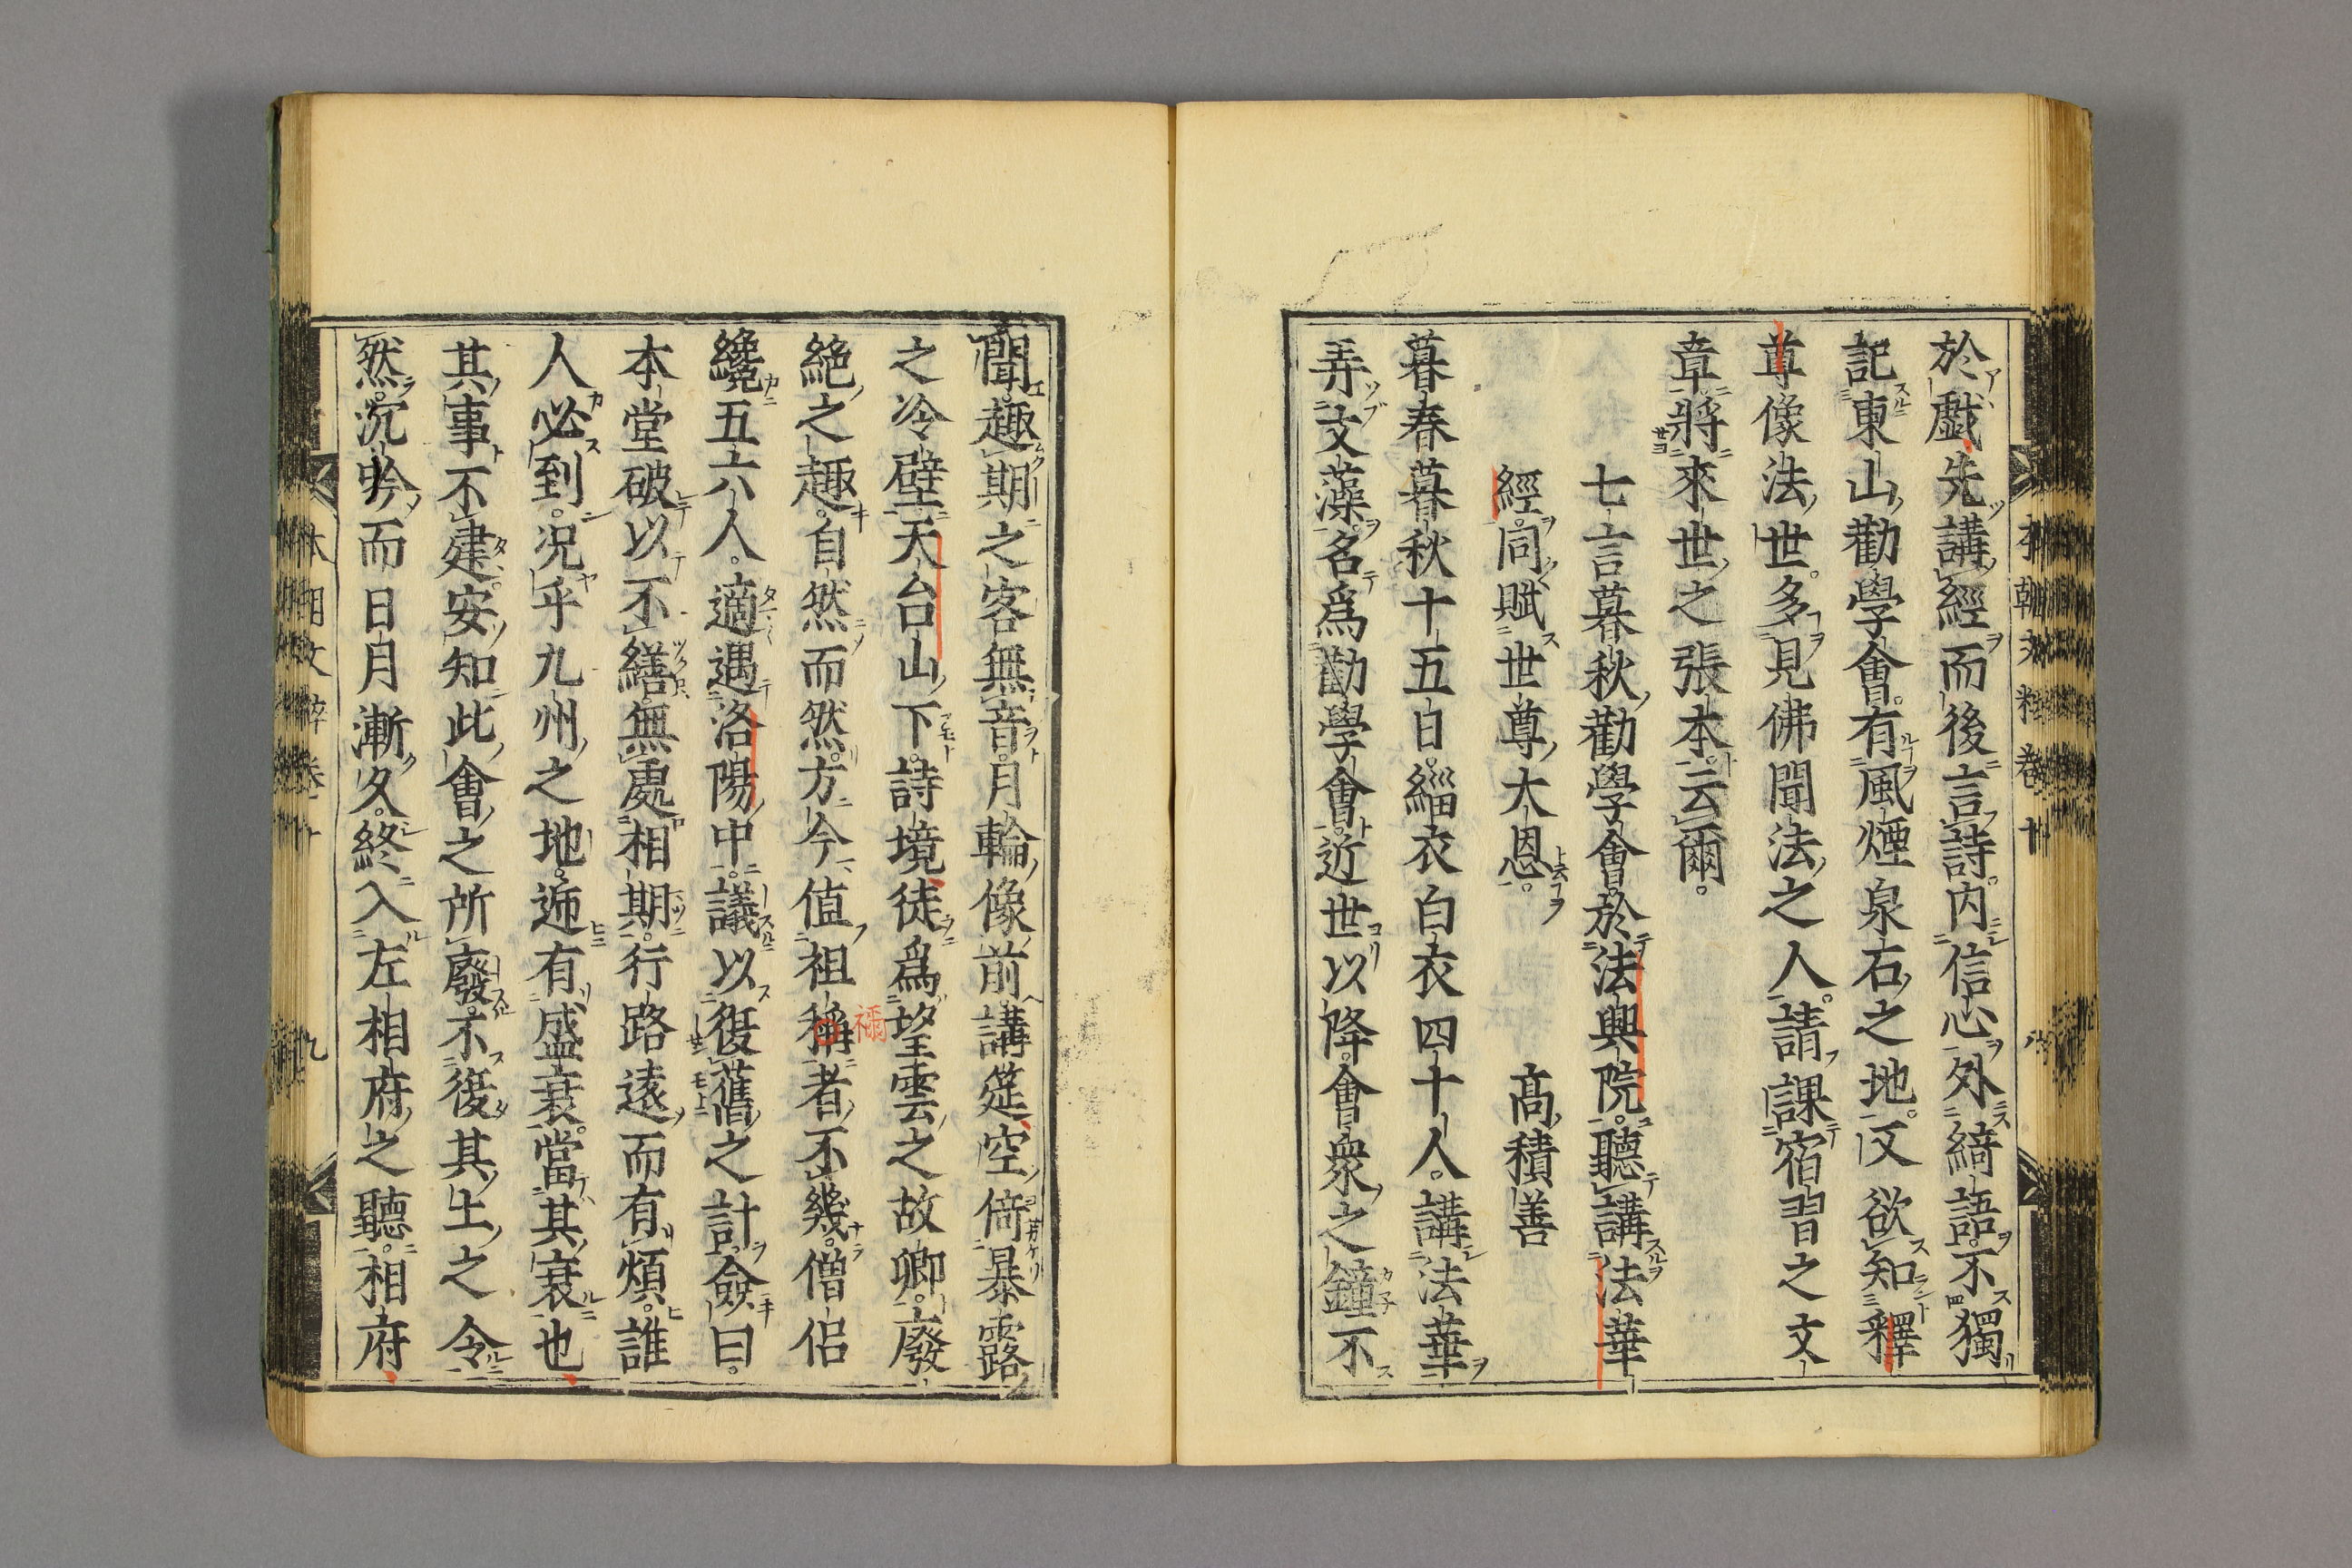 於戯先講經而後言詩内信心外綺語不獨
記東山勸學會有風煙泉石之地又欲知釋
尊像法世多見佛聞法之人請課宿習之文
章將來世之張本云爾
七言暮秋勸學會於法興院聽講法華
經同賦世尊大恩
高積善
暮春暮秋十五日緇衣白衣四十人講法華
弄文藻名爲勸學會近世以降會衆之鐘不
聞趣期之客無音月輪像前講筵空倚暴露
之冷壁天台山下詩境徒爲望雲之故郷廢
絶之趣自然而然方今値祖稱者不幾僧侶
禰
纔五六人適遇洛陽中議以復舊之計僉曰
本堂破以不繕無處相期行路遠而有煩誰
人必到況乎九州之地遞有盛衰當其衰也
其事不建安知此會之所廢不復其土之令
然沉吟而日月漸久終入左相府之聽相府
本朝文粹卷十
八
本朝文粹卷十
九